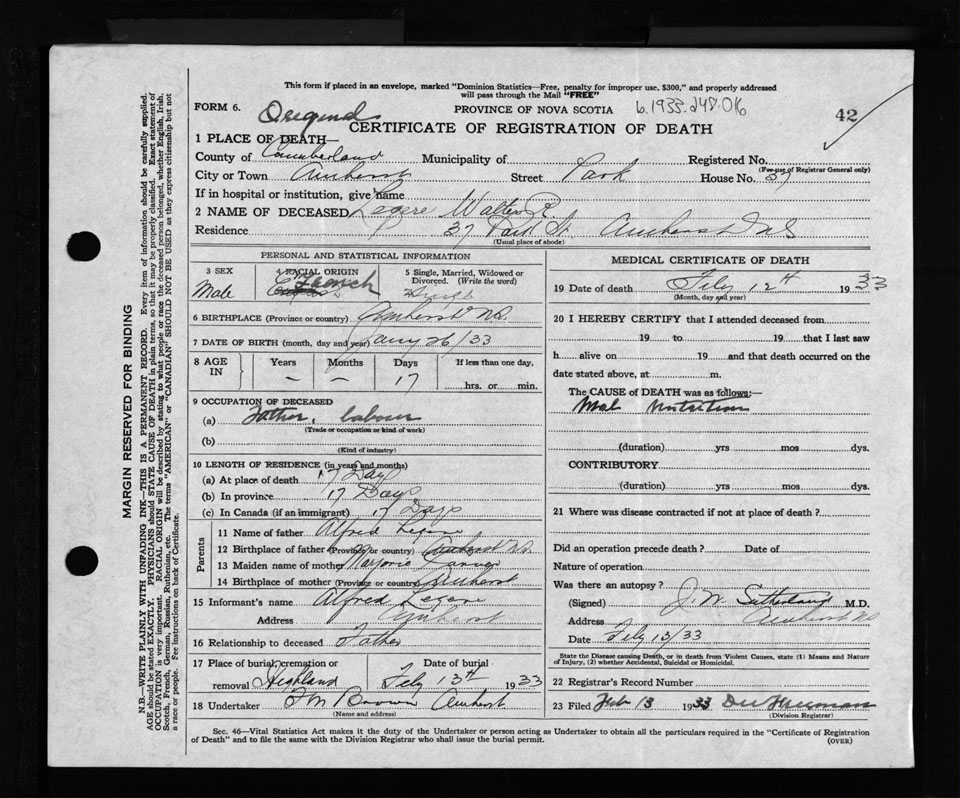 This form if placed in an envelope, marked "Dominion Statistics—Free, penalty for improper use, $300," and properly addressed
will pass through the Mail "FREE"
FORM 6.
PROVINCE OF NOVA SCOTIA
b.1933.248.016
42
Original
CERTIFICATE OF REGISTRATION OF DEATH
1 PLACE OF DEATH—
County of Cumberland Municipality of Registered No.
(For use of Registrar General only)
City or Town Amherst Street Park House No. 37
If in hospital or institution, give name
2 NAME OF DECEASED Legere Walter R.
Residence 37 Park St. Amherst N S
(Usual place of abode)
PERSONAL AND STATISTICAL INFORMATION
3 SEX 4 RACIAL ORIGIN 5 Single, Married, Widowed or Divorced. (Write the word)
Male French Single
6 BIRTHPLACE (Province or country) Amherst N.S.
7 DATE OF BIRTH (month, day and year) Jany 26/33
8 AGE IN Years Months Days If less than one day,
— — 17 hrs. or min.
9 OCCUPATION OF DECEASED
(a) Father, labour
(Trade or occupation or kind of work)
(b)
(Kind of industry)
10 LENGTH OF RESIDENCE (in years and months)
(a) At place of death 17 Days
(b) In province 17 Days
(c) In Canada (if an immigrant) 17 Days
Parents
11 Name of father Alfred Legere
12 Birthplace of father (Province or country) Amherst N.S.
13 Maiden name of mother Marjorie
14 Birthplace of mother (Province or country) Amherst
15 Informant's name Alfred Legere
Address Amherst
16 Relationship to deceased Father
17 Place of burial, cremation or removal Highland Date of burial Feby 13th 1933
18 Undertaker Brown Amherst
(Name and address)
MEDICAL CERTIFICATE OF DEATH
19 Date of death Feby 12th 1933
(Month, day and year)
20 I HEREBY CERTIFY that I attended deceased from
19 to 19 that I last saw
h alive on 19 and that death occurred on the
date stated above, at m.
The CAUSE OF DEATH was as follows:—
Mal Nutrition
(duration) yrs mos dys.
CONTRIBUTORY
(duration) yrs mos dys.
21 Where was disease contracted if not at place of death?
Did an operation precede death? Date of
Nature of operation
Was there an autopsy?
(Signed) J. W. Sutherland M.D.
Address Amherst NS
Date Feby 13/33
State the Disease causing Death, or in death from Violent Causes, state (1) Means and Nature
of Injury, (2) whether Accidental, Suicidal or Homicidal.
22 Registrar's Record Number
23 Filed Feb 13 1933
(Division Registrar)
Sec. 46—Vital Statistics Act makes it the duty of the Undertaker or person acting as Undertaker to obtain all the particulars required in the "Certificate of Registration
of Death" and to file the same with the Division Registrar who shall issue the burial permit.
(OVER)
MARGIN RESERVED FOR BINDING
N.B.—WRITE PLAINLY WITH UNFADING INK—THIS IS A PERMANENT RECORD. Every item of information should be carefully supplied.
AGE should be stated EXACTLY. PHYSICIANS should STATE CAUSE OF DEATH in plain terms, so that it may be properly classified. Exact statement of
OCCUPATION is very important. RACIAL ORIGIN will be described by stating to what people or race the deceased person belonged, whether English, Irish,
Scotch, French, German, Russian, Ruthenian, etc. The terms "AMERICAN" or "CANADIAN" SHOULD NOT BE USED as they express citizenship but not
a race or people. Fee instructions on back of Certificate.